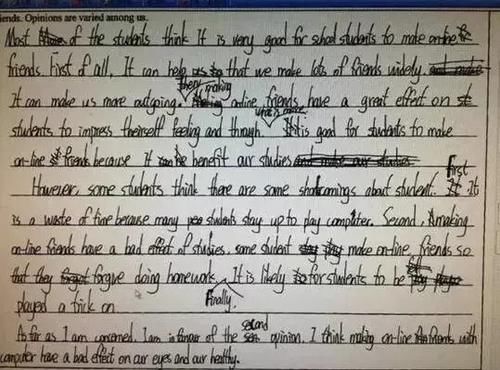 iends. Opinions are varied among us.
Most of the students think It is very good for school students to make on-line
friends. First of all, It can help that we make lots of friends widely
It can make us more outgoing. Then, making on-line friends have a great effect on
students to impress theirself feeling and through. what is more It is good for students to make
on-line friends because It can benefit our studies
However, some students think there are some shortcomings about student. First It
is a waste of time because many students stay up to play computer. Second, making
on-line friends have a bad effect of studies, some student make on-line friends so
that they forgive doing homework. Finally, It is likely for students to be
played a trick on.
As far as I am concerned, I am in favour of the second opinion. I think making on-line friends with
computer have a bad effect on our eyes and our healthy.